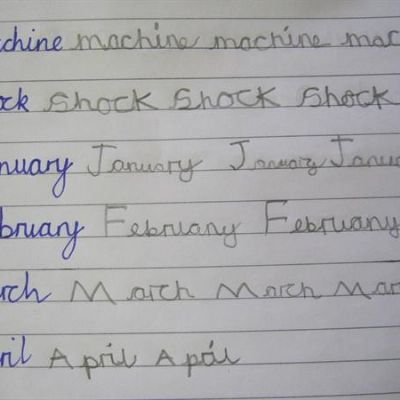 chine machine machine mac
ck shock shock shock
nuary January January Janua
bruary February February
rch March March Mar
ril April April